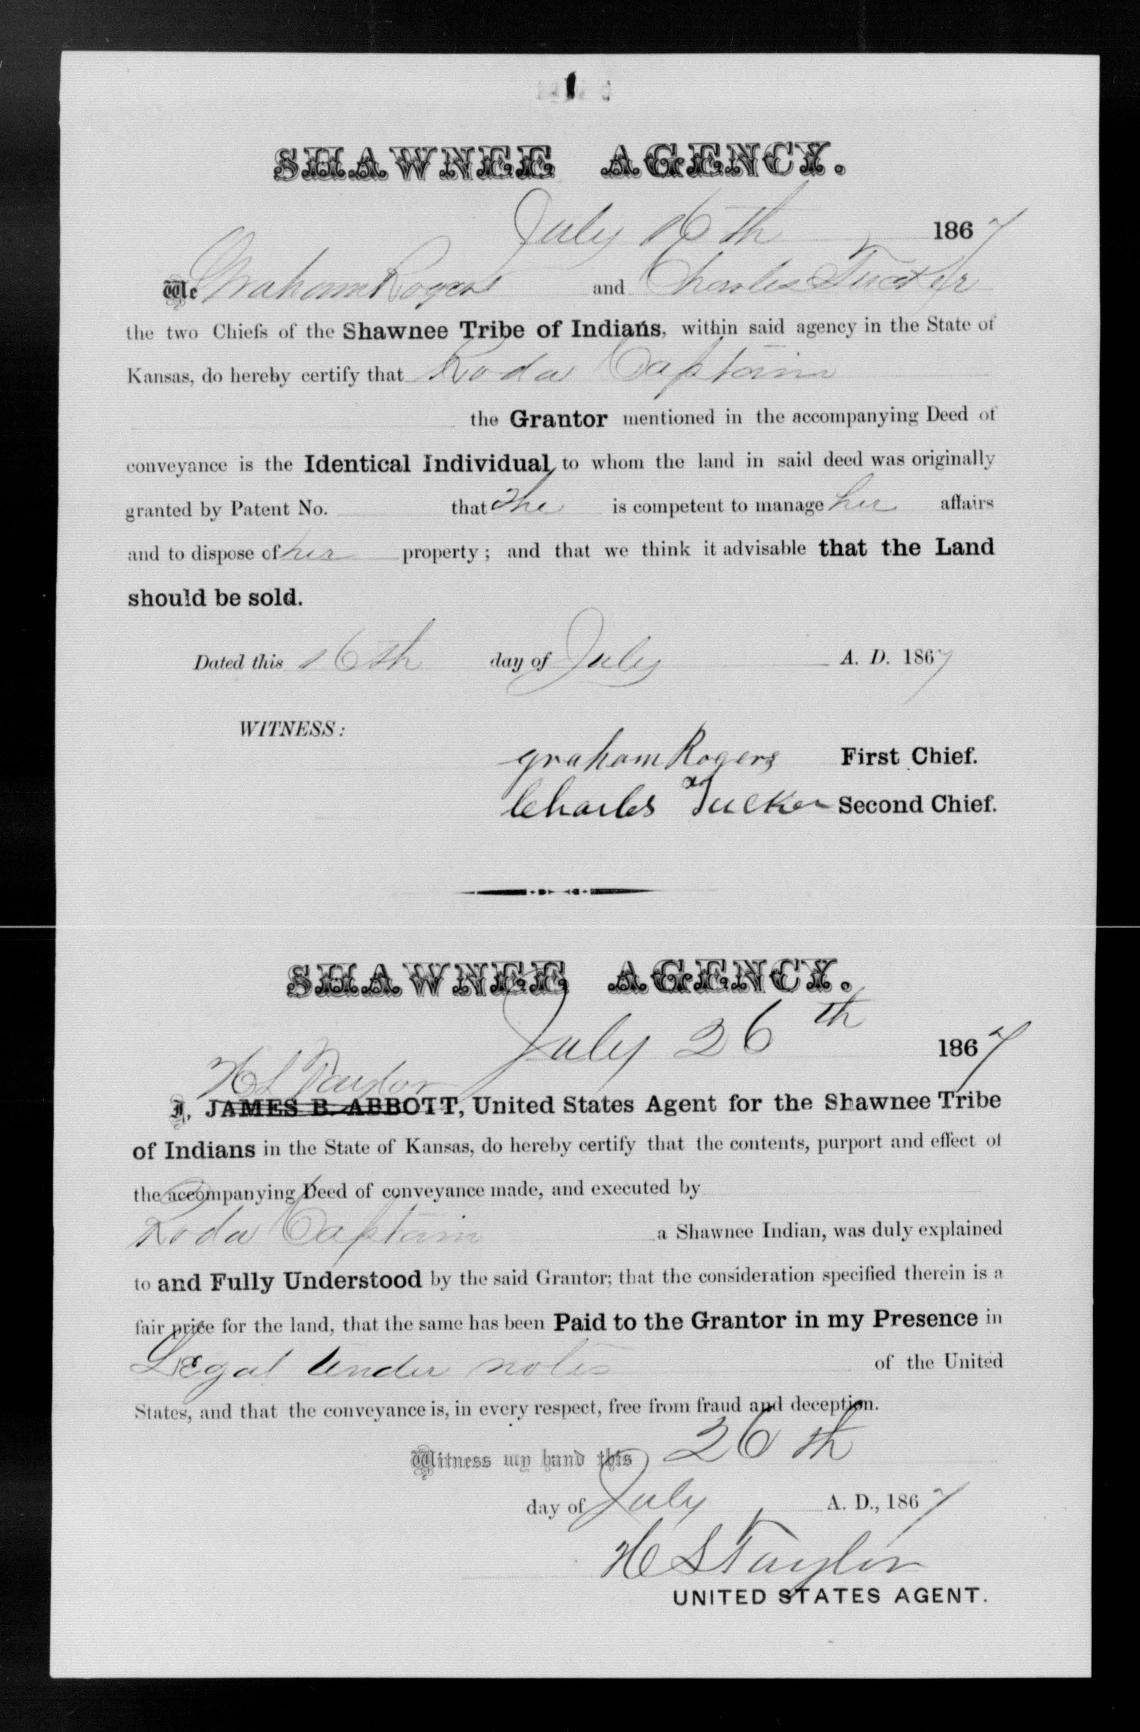 1
SHAWNEE AGENCY.
July 16th 1867
We Graham Rogers and Charles Tucker
the two Chiefs of the Shawnee Tribe of Indians, within said agency in the State of
Kansas, do hereby certify that Roda Captain
the Grantor mentioned in the accompanying Deed of
conveyance is the Identical Individual, to whom the land in said deed was originally
granted by Patent No. that she is competent to manage her affairs
and to dispose of her property; and that we think it advisable that the Land
should be sold.
Dated this 16th day of July A. D. 1867
WITNESS:
graham Rogers First Chief.
Charles Tucker Second Chief.
SHAWNEE AGENCY.
July 26th 1867
H S Taylor
I, JAMES B. ABBOTT, United States Agent for the Shawnee Tribe
of Indians in the State of Kansas, do hereby certify that the contents, purport and effect of
the accompanying Deed of conveyance made, and executed by
Roda Captain a Shawnee Indian, was duly explained
to and Fully Understood by the said Grantor; that the consideration specified therein is a
fair price for the land, that the same has been Paid to the Grantor in my Presence in
Legal tender notes of the United
States, and that the conveyance is, in every respect, free from fraud and deception.
Witness my hand this 26th
day of July A. D., 1867
H S Taylor
UNITED STATES AGENT.